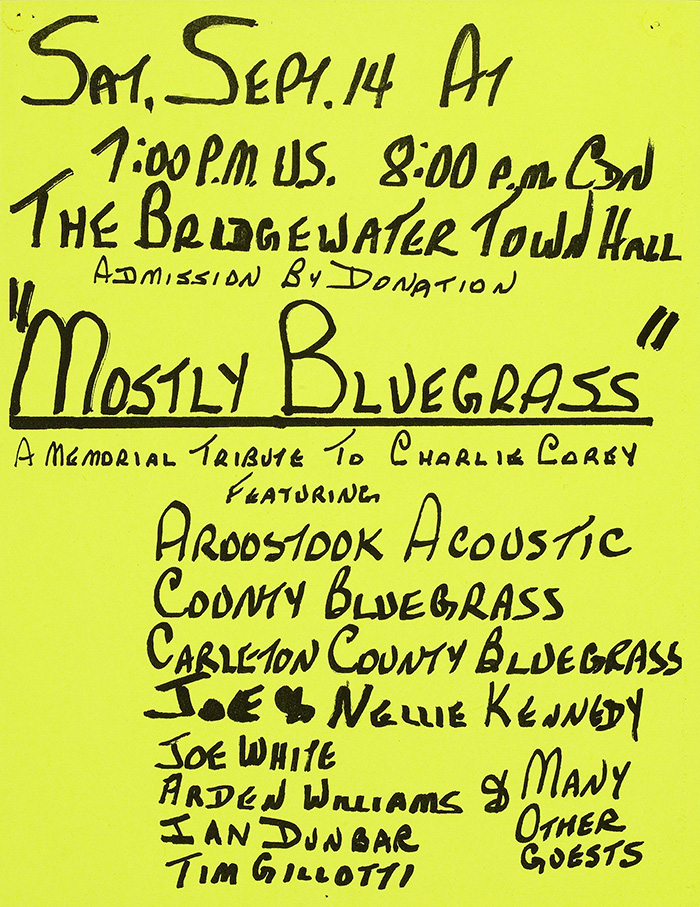 SAT, SEPT. 14 AT
7:00 P.M. U.S. 8:00 P.M. CDN
THE BRIDGEWATER TOWN HALL
ADMISSION BY DONATION
"MOSTLY BLUEGRASS"
A MEMORIAL TRIBUTE TO CHARLIE COREY
FEATURING
AROOSTOOK ACOUSTIC
COUNTY BLUEGRASS
CARLETON COUNTY BLUEGRASS
JOE & NELLIE KENNEDY
JOE WHITE
ARDEN WILLIAMS & MANY
IAN DUNBAR OTHER
TIM GILLOTTI GUESTS